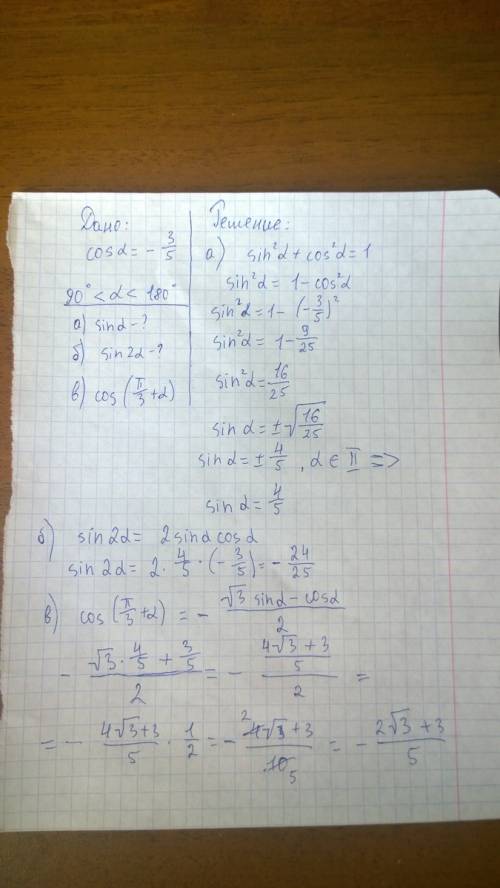 Дано:
cosα = - 3/5
90° < α < 180°
а) sinα - ?
б) sin2α - ?
в) cos(π/3 + α)
Решение:
а) sin²α + cos²α = 1
sin²α = 1 - cos²α
sin²α = 1 - (-3/5)²
sin²α = 1 - 9/25
sin²α = 16/25
sinα = ±√(16/25)
sinα = ± 4/5, α ∈ II =>
sinα = 4/5
б) sin2α = 2sinα cosα
sin2α = 2 · 4/5 · (-3/5) = - 24/25
в) cos(π/3 + α) = - (√3 sinα - cosα)/2
- (√3 · 4/5 + 3/5)/2 = - ((4√3 + 3)/5)/2 =
= - (4√3 + 3)/5 · 1/2 = - (²4√3 + 3)/10 5 = - (2√3 + 3)/5